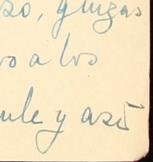 so, y lugas
o a los
ule y así